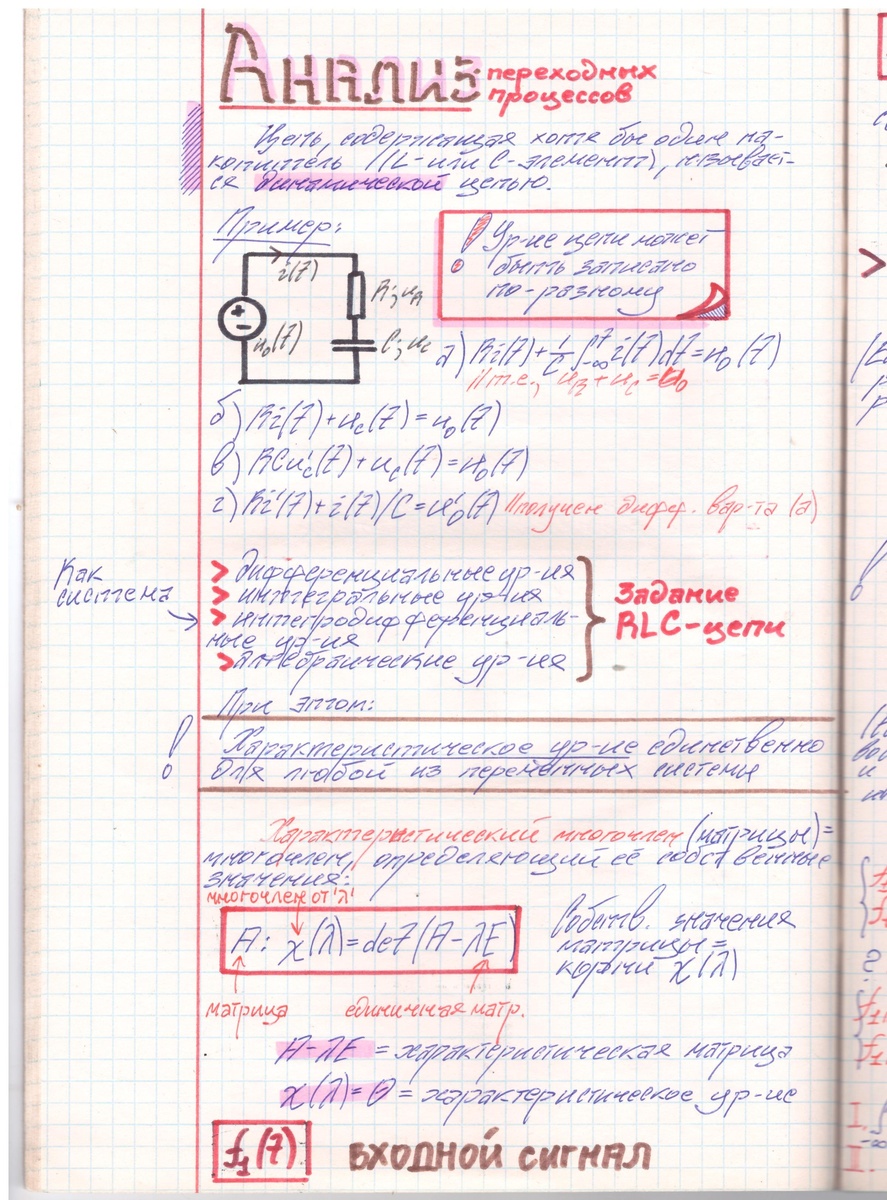 Анализ переходных процессов
Цепь, содержащая хотя бы один на-
копитель (L- или C-элемент), называет-
ся динамической цепью.
Пример:
i(t)
R; uR
C; uc
u₀(t)
! Ур-ие цепи может
быть записано
по-разному
а) Ri(t) + 1/C ∫_{-∞}^{t} i(t)dt = u₀(t)
// т.е., u_R + u_C = u₀
б) Ri(t) + u_c(t) = u₀(t)
в) RCu'_c(t) + u_c(t) = u₀(t)
г) Ri'(t) + i(t)/C = u'₀(t) // получен дифф. вар-та (а)
Как
система
> дифференциальные ур-ия
> интегральные ур-ия
> интегродифференциаль-
ные ур-ия
> алгебраические ур-ия
Задание
RLC-цепи
При этом:
! Характеристическое ур-ие единственно
для любой из переменных системы
Характеристический многочлен (матрицы) =
многочлен, определяющий её собственные
значения:
многочлен от 'λ'
A: χ(λ) = det(A - λE)
матрица
единичная матр.
Собств. значения
матрицы =
корни χ(λ)
A - λE = характеристическая матрица
χ(λ) = 0 = характеристическое ур-ие
f₁(t) ВХОДНОЙ СИГНАЛ